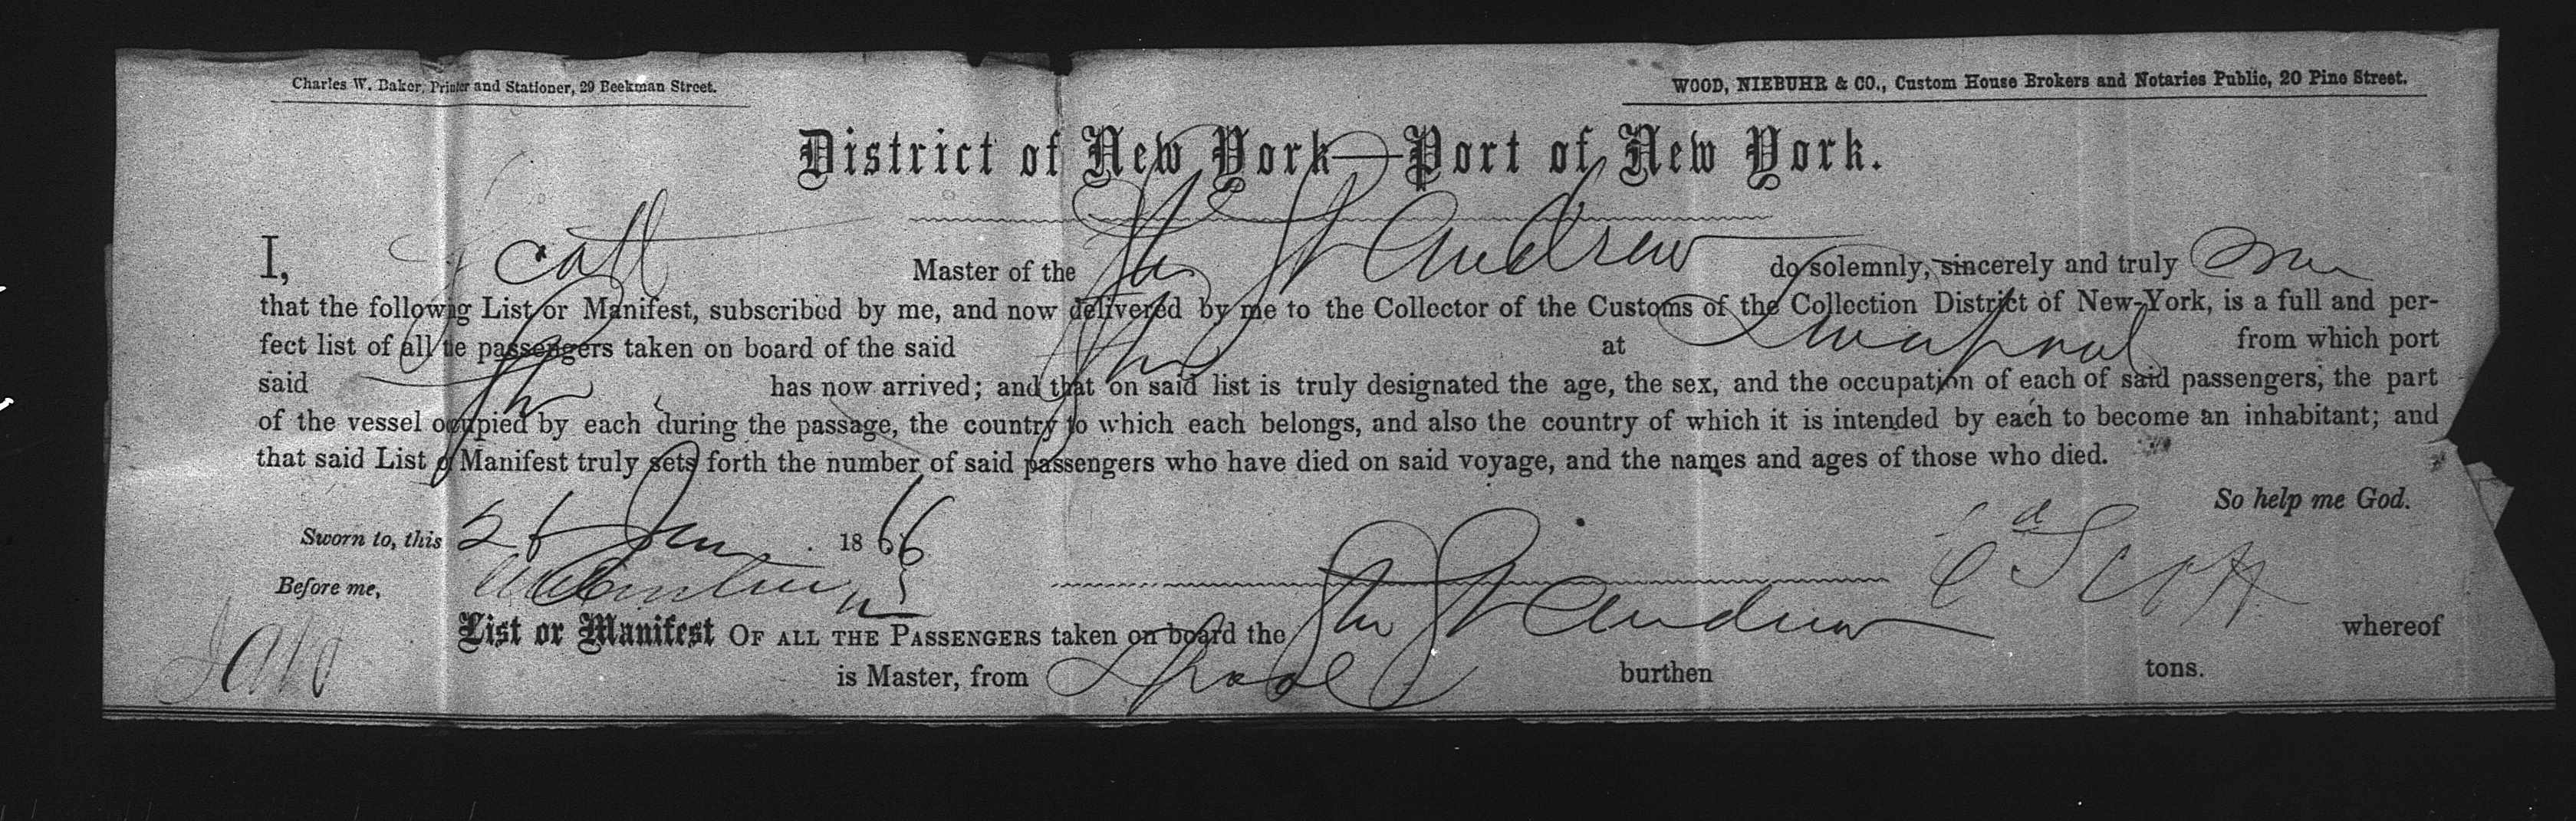 Charles W. Baker, Printer and Stationer, 29 Beekman Street.
WOOD, NIEBUHR & CO., Custom House Brokers and Notaries Public, 20 Pine Street.
District of New York—Port of New York.
I, Scott Master of the Str St Andrew do solemnly, sincerely and truly
that the followig List or Manifest, subscribed by me, and now delivered by me to the Collector of the Customs of the Collection District of New-York, is a full and per-
fect list of all te passengers taken on board of the said Str at Liverpool from which port
said Str has now arrived; and that on said list is truly designated the age, the sex, and the occupation of each of said passengers, the part
of the vessel occupied by each during the passage, the country to which each belongs, and also the country of which it is intended by each to become an inhabitant; and
that said List o Manifest truly sets forth the number of said passengers who have died on said voyage, and the names and ages of those who died.
So help me God.
Sworn to, this 26 Jany 1866
Before me,
Ed Scott
List or Manifest OF ALL THE PASSENGERS taken on board the Str St Andrew whereof
is Master, from Lpool burthen tons.